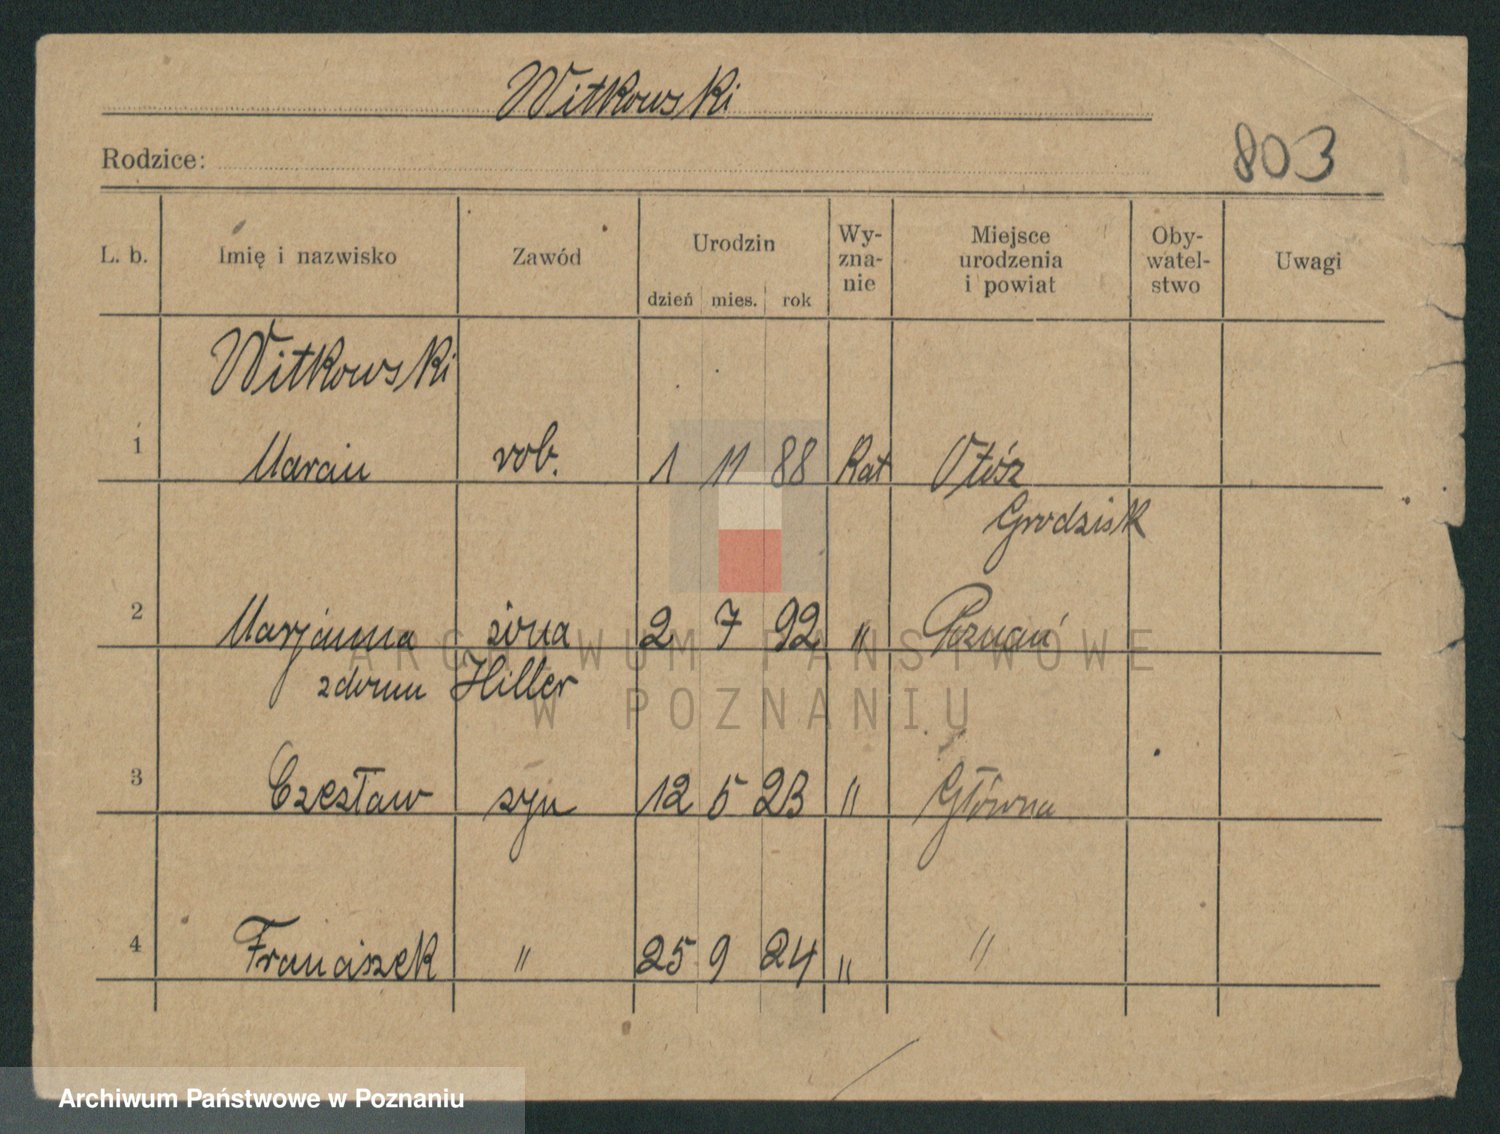 Witkowski
Rodzice:
803
L. b. Imię i nazwisko Zawód Urodzin Wy- Miejsce Oby- Uwagi
zna- urodzenia watel-
nie i powiat stwo
dzień mies. rok
Witkowski
1 Marcin rob. 1 11 88 Kat
Grodzisk
2 Marjanna żona 2 7 92 " Poznań
z domu Hiller
3 Czesław syn 12 5 23 " Główna
4 Franciszek " 25 9 24 " "
ARCHIWUM PAŃSTWOWE
W POZNANIU
Archiwum Państwowe w Poznaniu